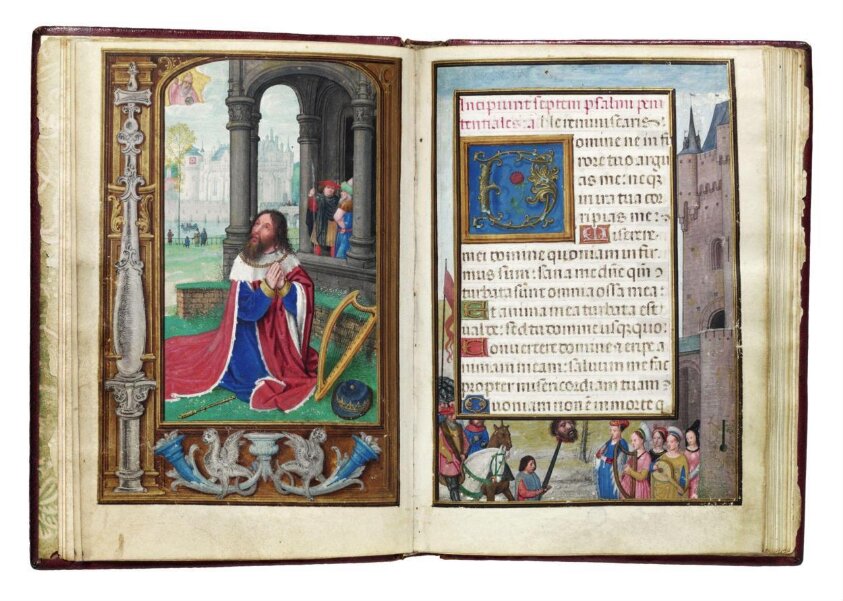 Incipiunt septem psalmi peni
tentiales. a Ne reminiscaris.
Domine ne in fu
rore tuo argu
as me: neq3
in ira tua cor
ripias me:
Miserere
mei domine quoniam in fir
mus sum: sana me dñe qm̃
turbata sunt omnia ossa mea:
Et anima mea turbata est
valde: sed tu domine usq3quo:
Convertere domine & eripe a
nimam meam: salvum me fac
propter misericordiam tuam:
Quoniam non ẽ in morte q